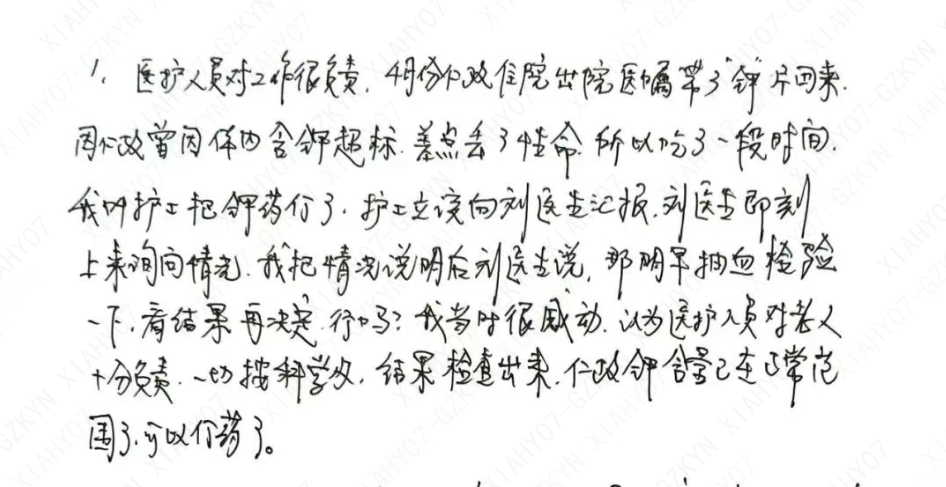 1、医护人员对工作很负责，4月份仁政住院出院医嘱带了"钾"片回来.
因仁政曾因体内含钾超标.差点丢了性命.所以吃了一段时间.
我叫护士把钾药停了.护士立该向刘医生汇报.刘医生即刻
上来询问情况.我把情况说明后刘医生说，那明早抽血检验
一下，看结果再决定.行吗？我当时很感动.认为医护人员对老人
十分负责.一切按科学办.结果检查出来.仁政钾含量已在正常范
围了.可以停药了。
XIAHY07-GZKYN